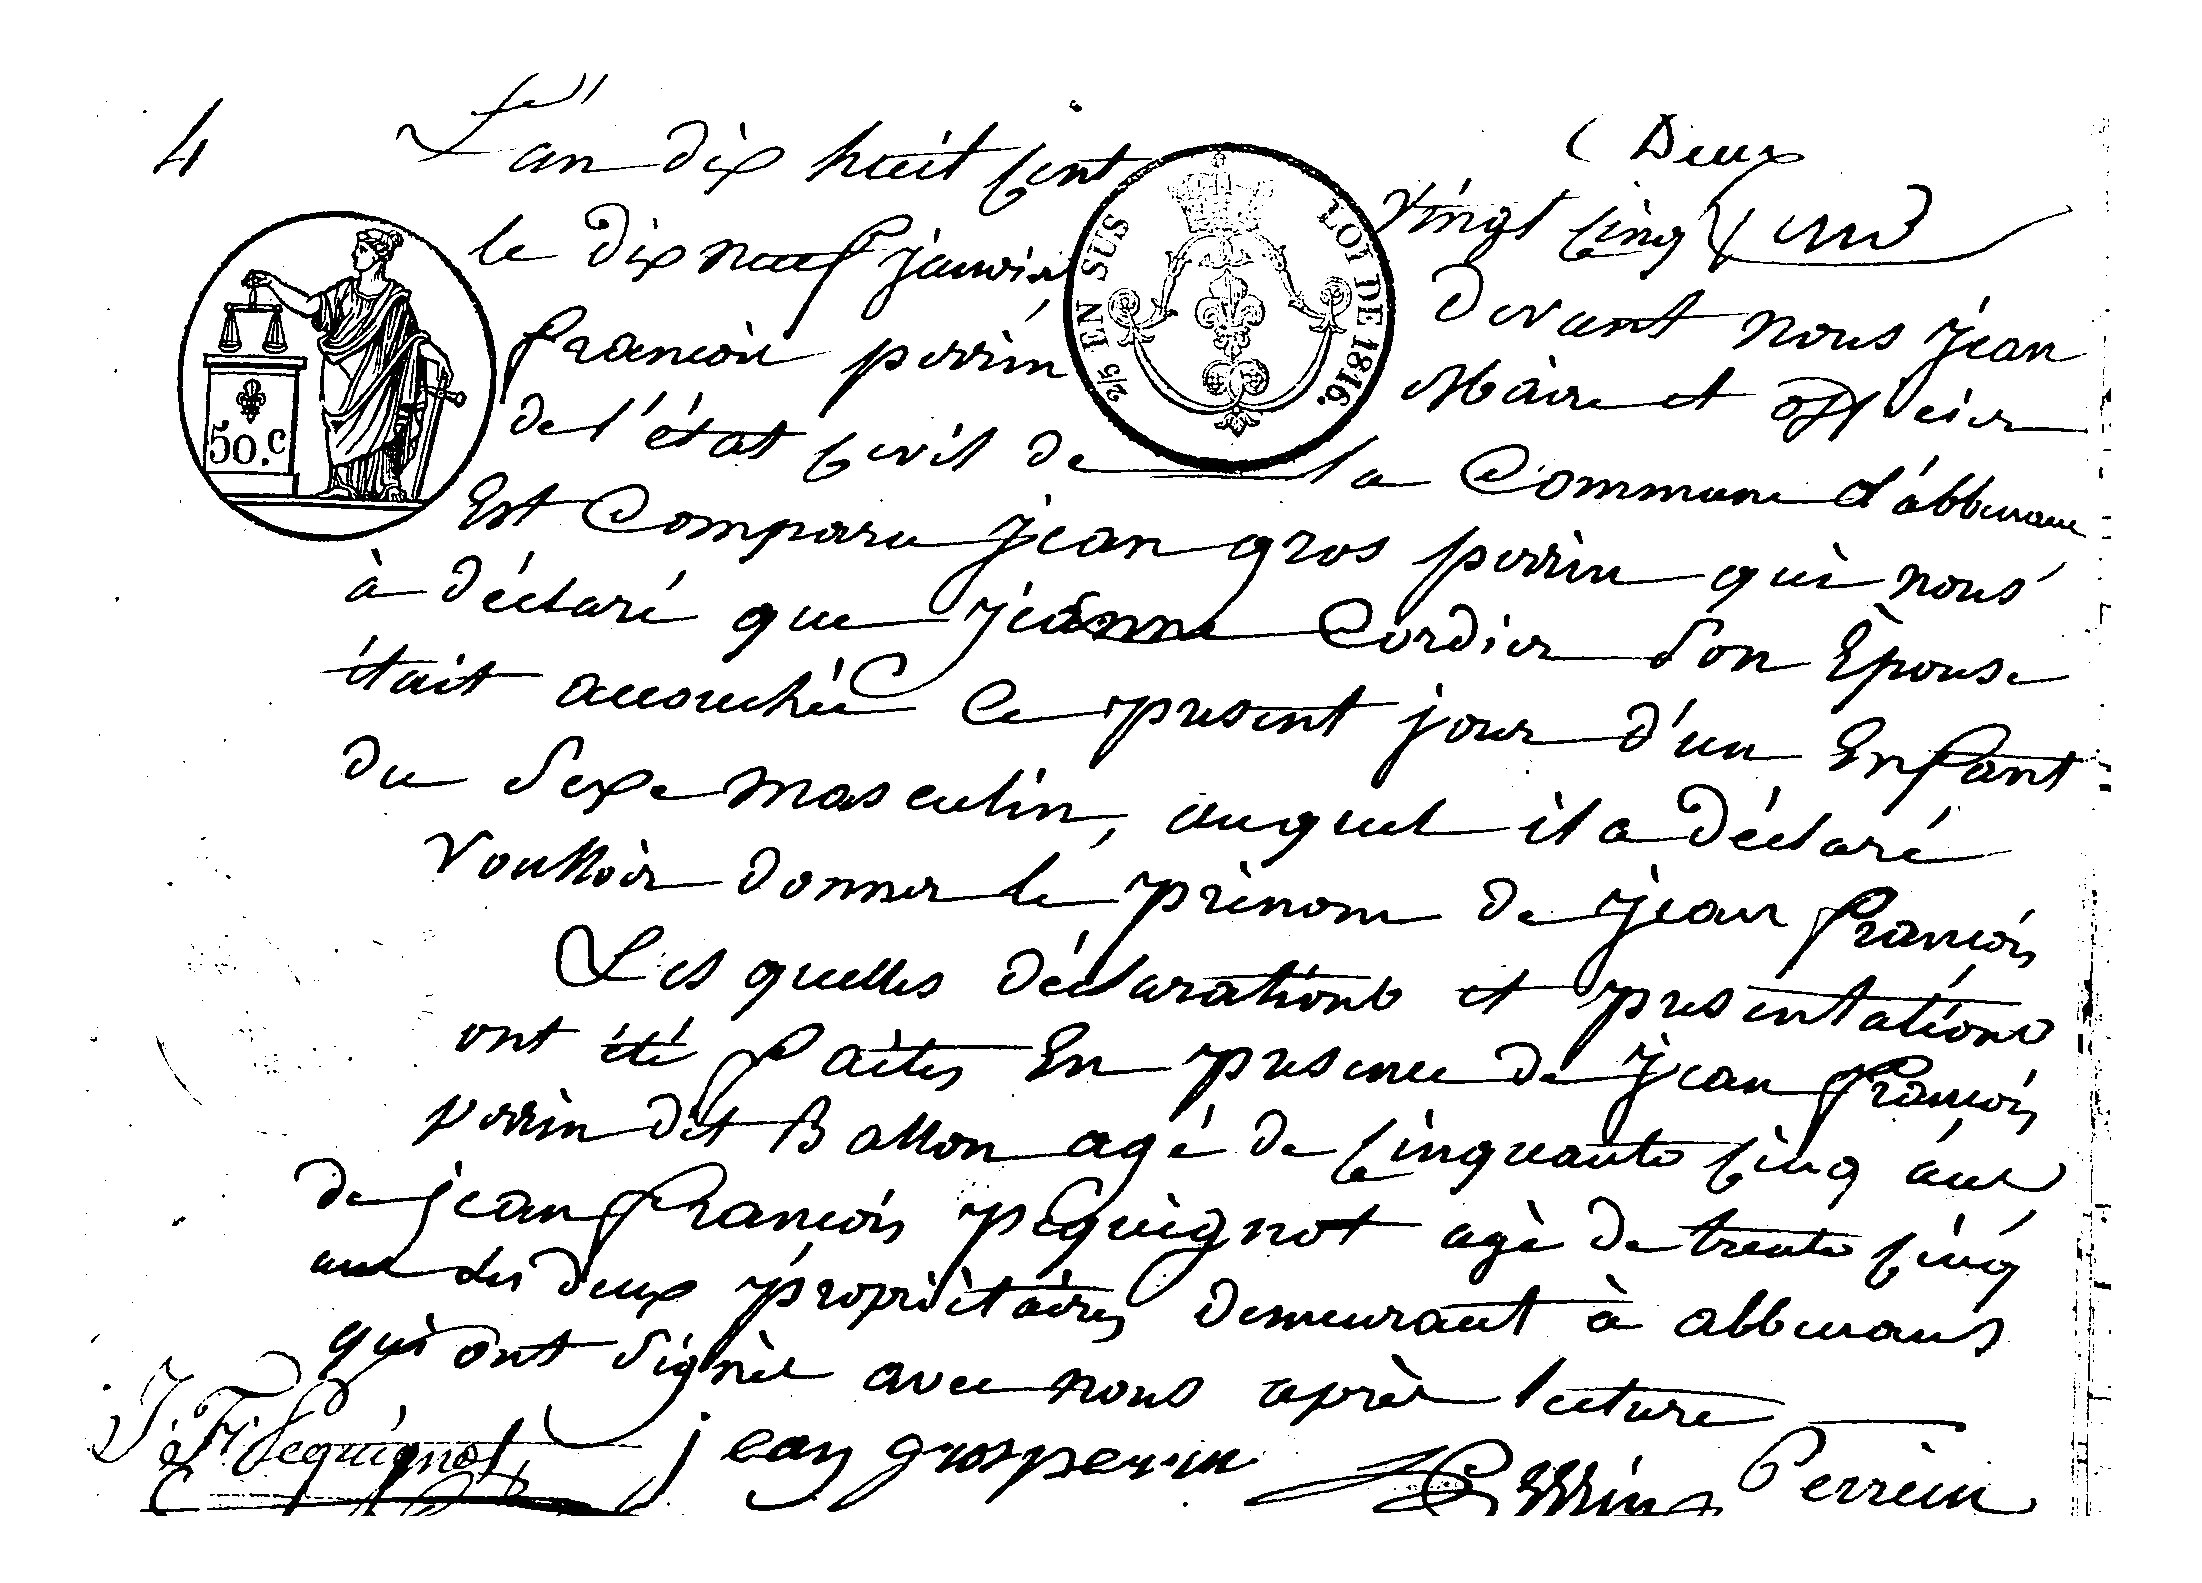 4
Deux
L'an dix huit cent vingt cinq
le dix neuf janvier devant nous jean
françois perrin Maire et officier
de l'état civil de la Commune d'abbenans
Est Comparu jean gros perrin qui nous
à déclaré que jeanne Cordier son Epouse
était accouchée Ce present jour d'un Enfant
du sexe masculin, auquel il a déclaré
voulloir donner le prenom de jean françois
Les quelles déclarations et presentations
ont été faites En presence de jean françois
perrin dit Ballon agé de cinquante cinq ans
de jean françois pequignot agé de trente cinq
ans les deux propriètaires demeurant à abbenans
qui ont signèe avec nous après lecture
J. F. Pequignot jean grosperrin Perrin Perrein
50.c
2/5 EN SUS LOI DE 1816.